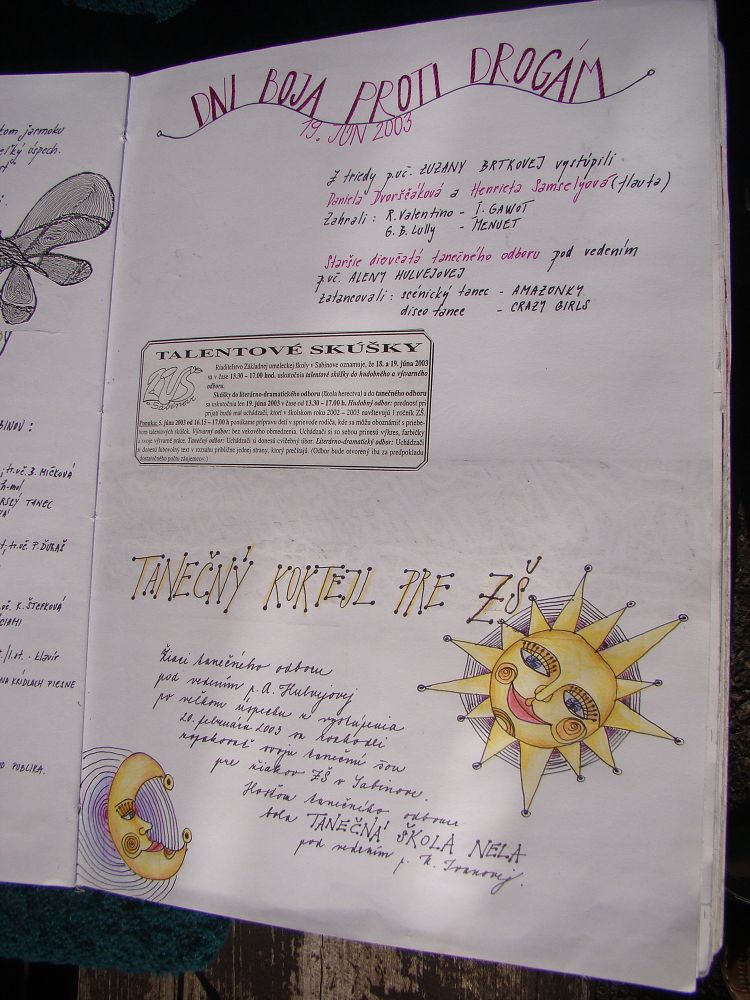 tom jarmoku
veľký úspech.
DNI BOJA PROTI DROGÁM
19. JÚN 2003
Z triedy p.uč. ZUZANY BRTKOVEJ vystúpili
Daniela Dvorščáková a Henrieta Samselyová (flauta)
Zahrali : R. Valentino - I. GAWOT
G. B. Lully - MENUET
Staršie dievčatá tanečného odboru pod vedením
p.uč. ALENY HULVEJOVEJ
zatancovali : scénický tanec - AMAZONKY
disco tanec - CRAZY GIRLS
TALENTOVÉ SKÚŠKY
ZUŠ Sabinov
Riaditeľstvo Základnej umeleckej školy v Sabinove oznamuje, že 18. a 19. júna 2003
sa v čase 13.30 – 17.00 hod. uskutočnia talentové skúšky do hudobného a výtvarného
odboru.
Skúšky do literárno-dramatického odboru (škola herectva) a do tanečného odboru
sa uskutočnia len 19. júna 2003 v čase od 13.30 – 17.00 h. Hudobný odbor: prednosť pri
prijatí budú mať uchádzači, ktorí v školskom roku 2002 – 2003 navštevujú 1.ročník ZŠ.
Ponuka: 5. júna 2003 od 16.15 – 17.00 h ponúkame prípravu detí v sprievode rodiča, kde sa môžu oboznámiť s priebe-
hom talentových skúšok. Výtvarný odbor: bez vekového obmedzenia. Uchádzači si so sebou prinesú výkres, farbičky
a svoje výtvarné práce. Tanečný odbor: Uchádzači si donesú cvičebný úbor. Literárno-dramatický odbor: Uchádzači
si donesú ľubovoľný text v rozsahu približne jednej strany, ktorý prečítajú. (Odbor bude otvorený iba za predpokladu
dostatočného počtu záujemcov.)
tr.uč. B. MIČKOVÁ
h-mol
TANEC
tr.uč. P. ĎURAŠ
uč. K. ŠTEFKOVÁ
klavír
NA KRÍDLACH PIESNE
PUBLIKA.
TANEČNÝ KOKTEJL PRE ZŠ
Žiaci tanečného odboru
pod vedením p. A. Hulvejovej
po veľkom úspechu z vystúpenia
20. februára 2003 sa rozhodli
zopakovať svoju tanečnú šou
pre žiakov ZŠ v Sabinove.
Hosťom tanečného odboru
bola TANEČNÁ ŠKOLA NELA
pod vedením p. N. Ivanovej.